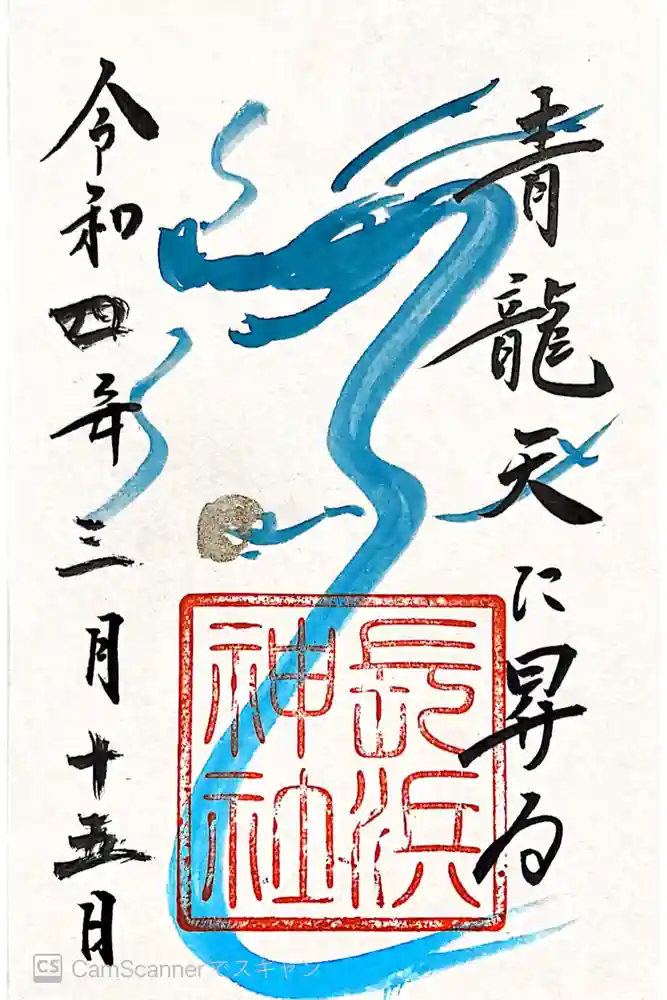 青龍天に昇る
令和四年三月十五日
長浜
神社
CS CamScannerでスキャン